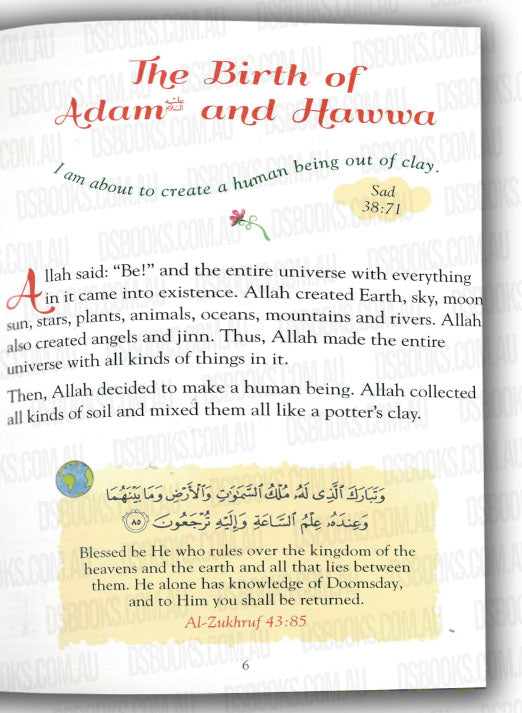 The Birth of
Adam عليه السلام and Hawwa
I am about to create a human being out of clay.
Sad
38:71
Allah said: “Be!” and the entire universe with everything
in it came into existence. Allah created Earth, sky, moon
sun, stars, plants, animals, oceans, mountains and rivers. Allah
also created angels and jinn. Thus, Allah made the entire
universe with all kinds of things in it.
Then, Allah decided to make a human being. Allah collected
all kinds of soil and mixed them all like a potter’s clay.
وَتَبَارَكَ الَّذِى لَهُۥ مُلْكُ السَّمَٰوَٰتِ وَالْأَرْضِ وَمَا بَيْنَهُمَا
وَعِندَهُۥ عِلْمُ السَّاعَةِ وَإِلَيْهِ تُرْجَعُونَ ٨٥
Blessed be He who rules over the kingdom of the
heavens and the earth and all that lies between
them. He alone has knowledge of Doomsday,
and to Him you shall be returned.
Al-Zukhruf 43:85
6
DSBOOKS.COM.AU